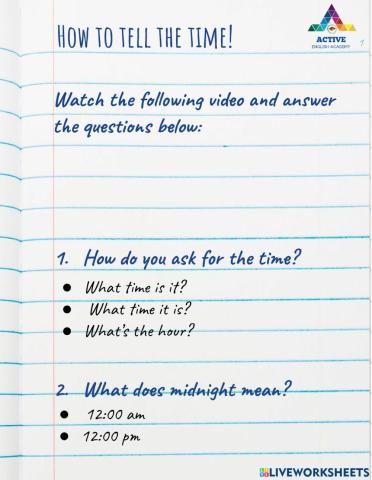 HOW TO TELL THE TIME!
ACTIVE
ENGLISH ACADEMY
1
Watch the following video and answer
the questions below:
1. How do you ask for the time?
● What time is it?
● What time it is?
● What's the hour?
2. What does midnight mean?
● 12:00 am
● 12:00 pm
LIVEWORKSHEETS